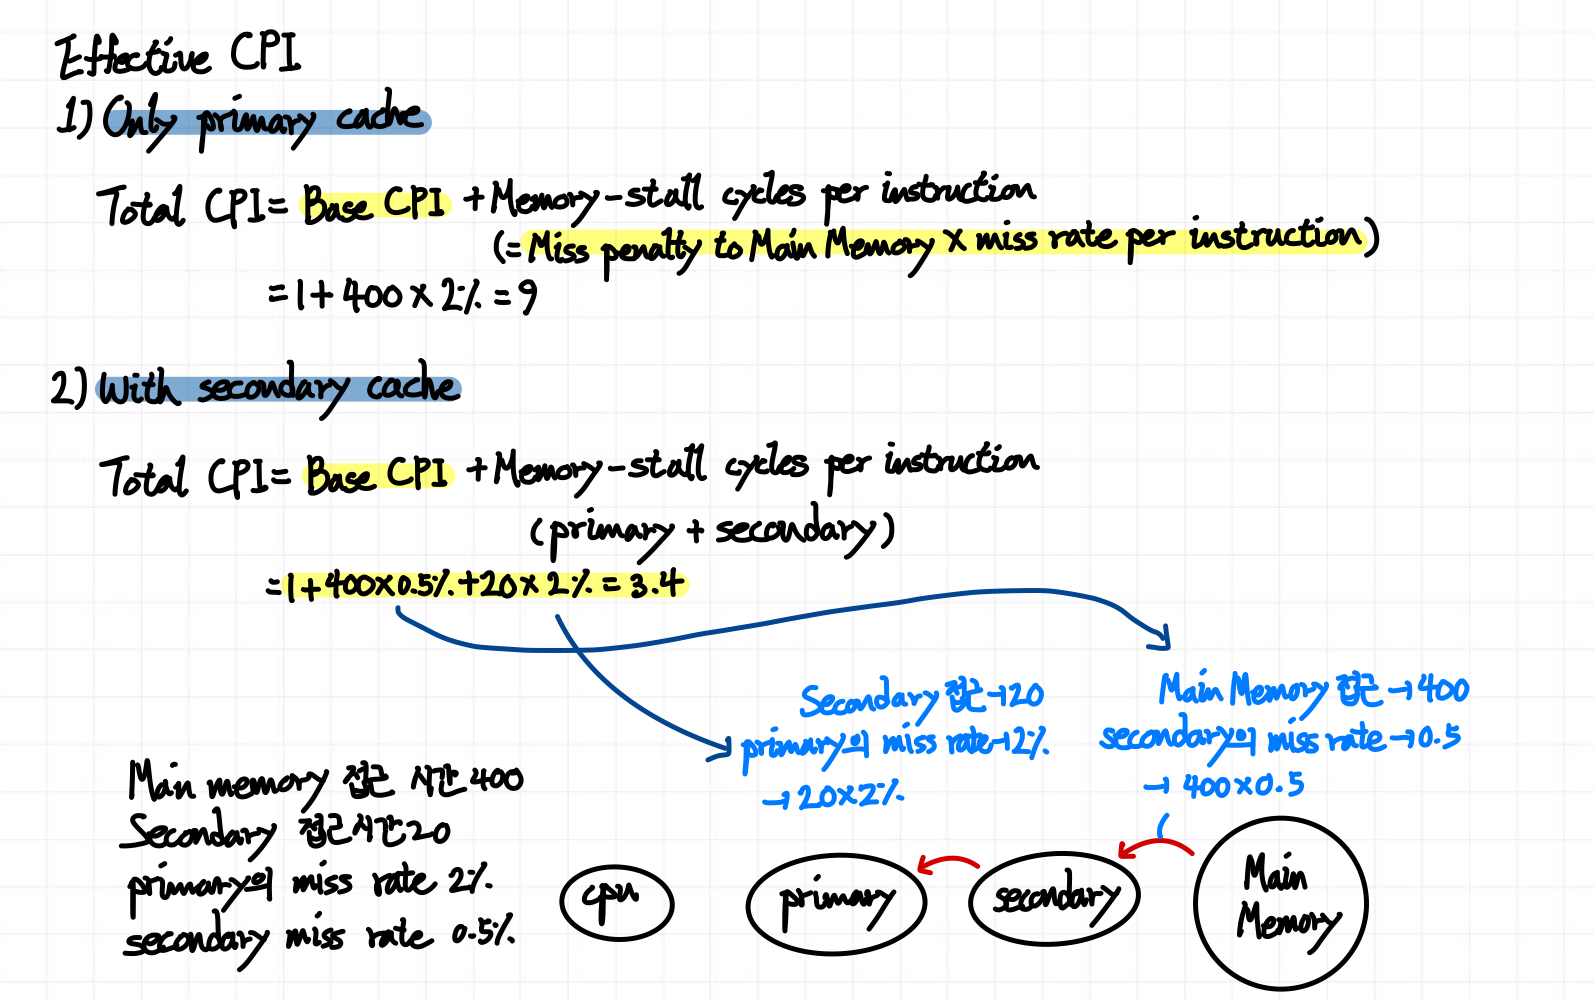 Effective CPI
1) Only primary cache
Total CPI = Base CPI + Memory-stall cycles per instruction
(= Miss penalty to Main Memory × miss rate per instruction)
= 1 + 400 × 2% = 9
2) With secondary cache
Total CPI = Base CPI + Memory-stall cycles per instruction
(primary + secondary)
= 1 + 400 × 0.5% + 20 × 2% = 3.4
Secondary 접근 → 20
primary의 miss rate → 2%
→ 20 × 2%
Main Memory 접근 → 400
secondary의 miss rate → 0.5
→ 400 × 0.5
Main memory 접근 시간 400
Secondary 접근시간 20
primary의 miss rate 2%
secondary miss rate 0.5%
cpu
primary
secondary
Main
Memory